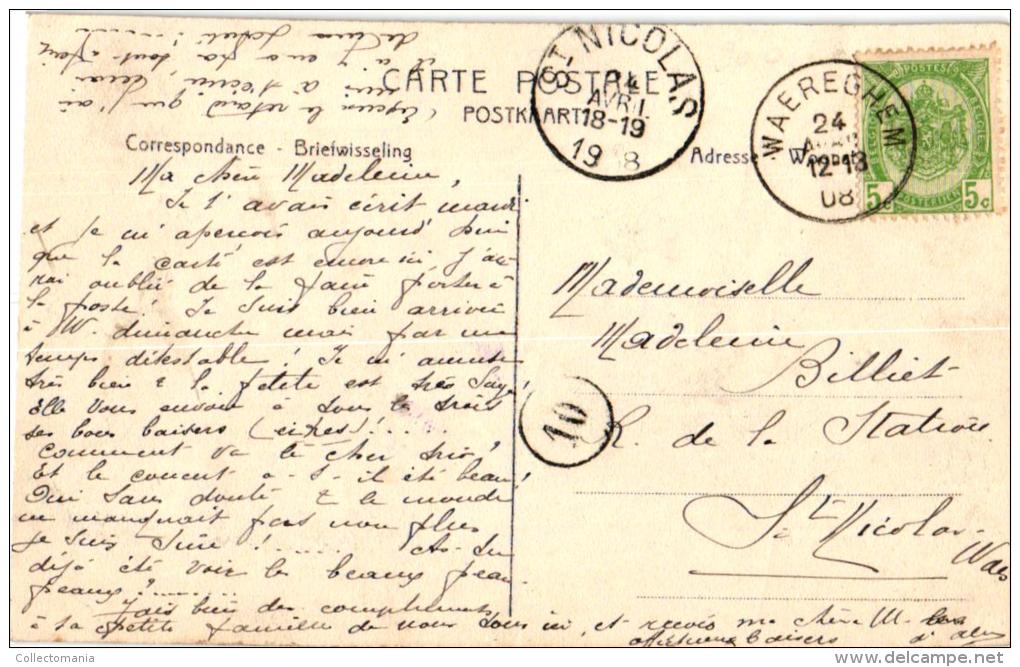 CARTE POSTALE
POSTKAART
Correspondance - Briefwisseling
Adresse
ST NICOLAS
24
AVRIL
18-19
19 8
WAEREGHEM
24
12-13
08
POSTES
5c 5c
POSTERIJEN
10
Ma chère Madeleine,
Je t'avais écrit mardi
et je m'aperçois aujourd'hui
que la carte est encore ici j'au-
rai oublié de la faire porter à
la poste! Je suis bien arrivée
à W. dimanche mais par un
temps détestable! Je m'amuse
très bien & la petite est très sage!
Elle vous envoie à tous les trois
ses bons baisers (cirés)!.....
Comment va le cher trio?
Et le concert a-t-il été beau?
Oui sans doute & le monde
ne manquait pas non plus
je suis sûre!...... As-tu
déjà été voir les beaux peau-
peaux?......
Fais bien des compliments
à ta petite famille de nous tous ici, et reçois ma chère M.
affectueux baisers
Excuse le retard que j'ai
mis à t'écrire,
il n'y en a pas
Mademoiselle
Madeleine
Billiet
R. de la Station
St Nicolas
Waes
Collectomania
delcampe.net